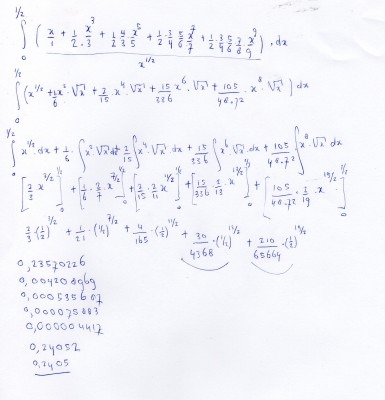 ∫₀^{1/2} ( x/1 + 1/2 · x³/3 + 1/2 · 3/4 · x⁵/5 + 1/2 · 3/4 · 5/6 · x⁷/7 + 1/2 · 3/4 · 5/6 · 7/8 · x⁹/9 ) / x^{1/2} · dx
∫₀^{1/2} ( x^{1/2} + 1/6 x² · √x + 2/15 x⁴ · √x + 15/336 x⁶ · √x + 105/48·72 · x⁸ · √x ) dx
∫₀^{1/2} x^{1/2} · dx + 1/6 · ∫ x² · √x dx + 2/15 ∫ x⁴ · √x dx + 15/336 ∫ x⁶ · √x · dx + 105/48·72 ∫ x⁸ · √x dx
[ 2/3 x^{3/2} ]₀^{1/2} + [ 1/6 · 2/7 · x^{7/2} ]₀^{1/2} + [ 2/15 · 2/11 x^{11/2} ]₀^{1/2} + [ 15/336 · 2/13 · x^{15/2} ]₀^{1/2} + [ 105/48·72 · 2/19 · x^{19/2} ]₀^{1/2}
2/3 · (1/2)^{3/2} + 1/21 · (1/2)^{7/2} + 4/165 · (1/2)^{11/2} + 30/4368 · (1/2)^{15/2} + 210/65664 · (1/2)^{19/2}
0,23570226
0,004208969
0,000535607
0,000075883
0,00004417
0,24052
0,2405